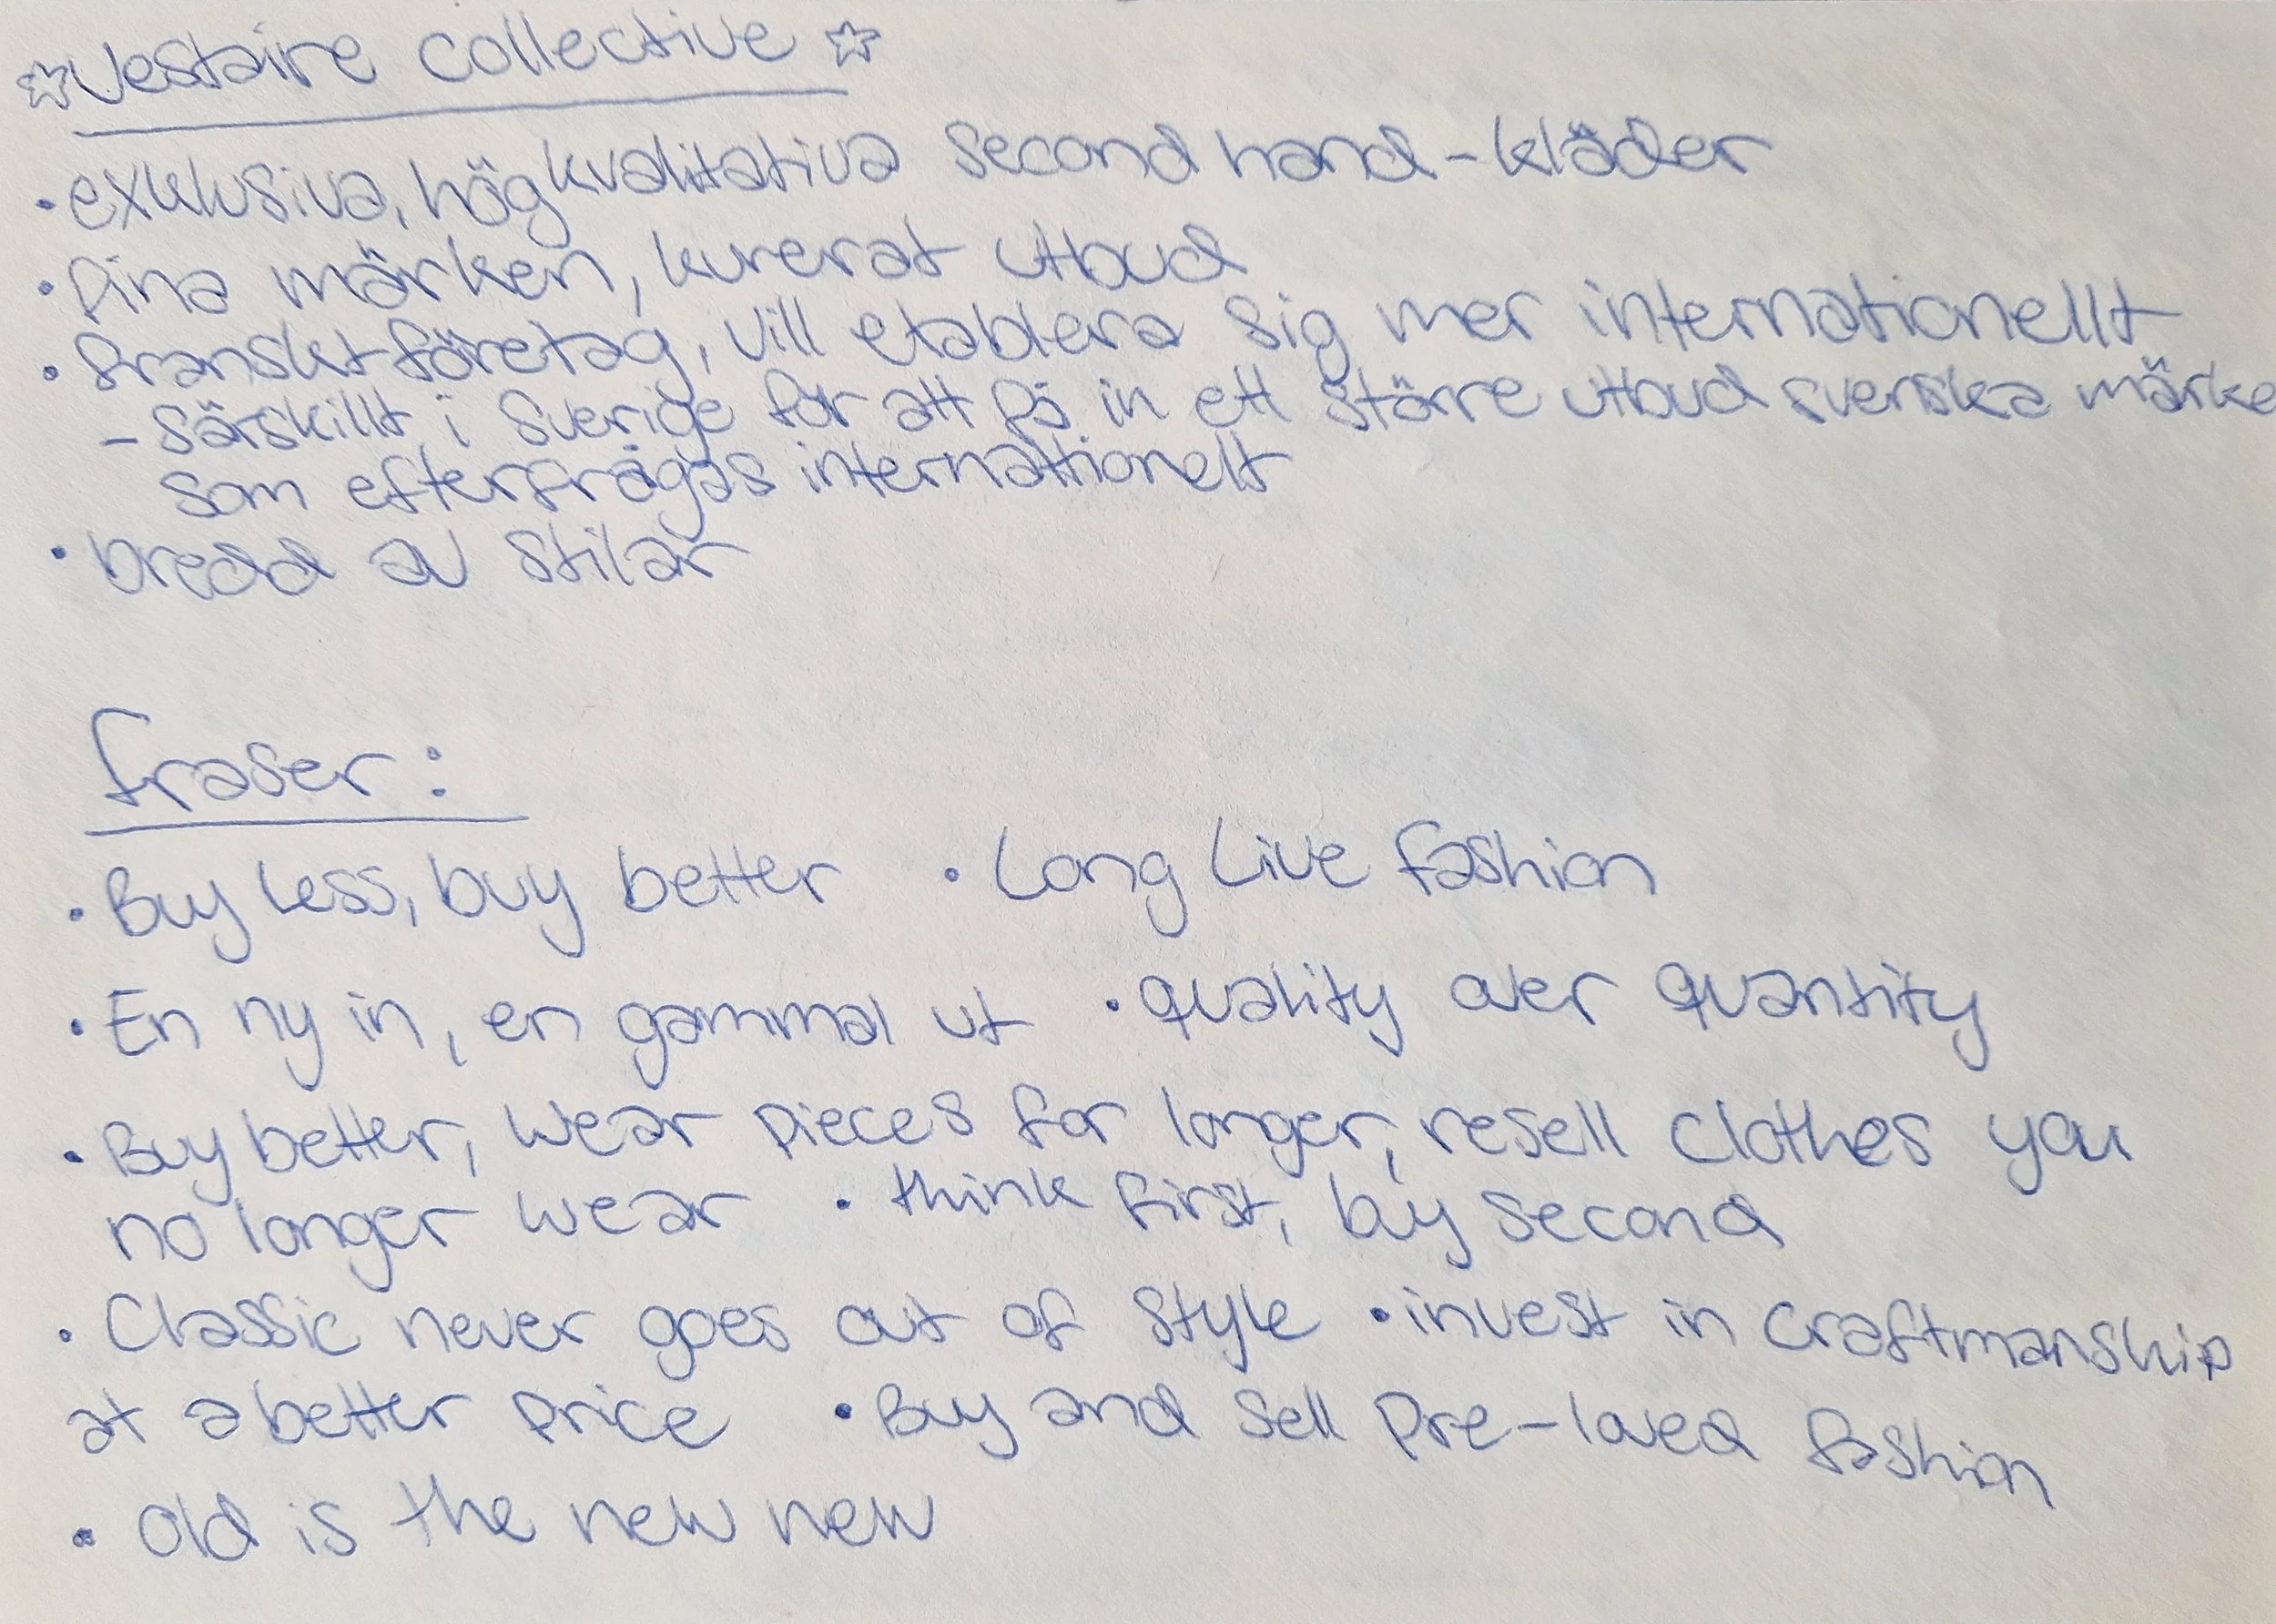 ☆Vestaire collective ☆
• exklusiva, högkvalitativa second hand-kläder
• fina märken, kurerat utbud
• franskt företag, vill etablera sig mer internationellt
- särskillt i Sverige för att få in ett större utbud svenska märke
som efterfrågas internationellt
• bredd av stilar
fraser:
• Buy less, buy better • Long Live fashion
• En ny in, en gammal ut • quality over quantity
• Buy better, wear pieces for longer, resell clothes you
no longer wear • think first, buy second
• Classic never goes out of style • invest in craftmanship
at a better price • Buy and sell pre-loved fashion
• Old is the new new